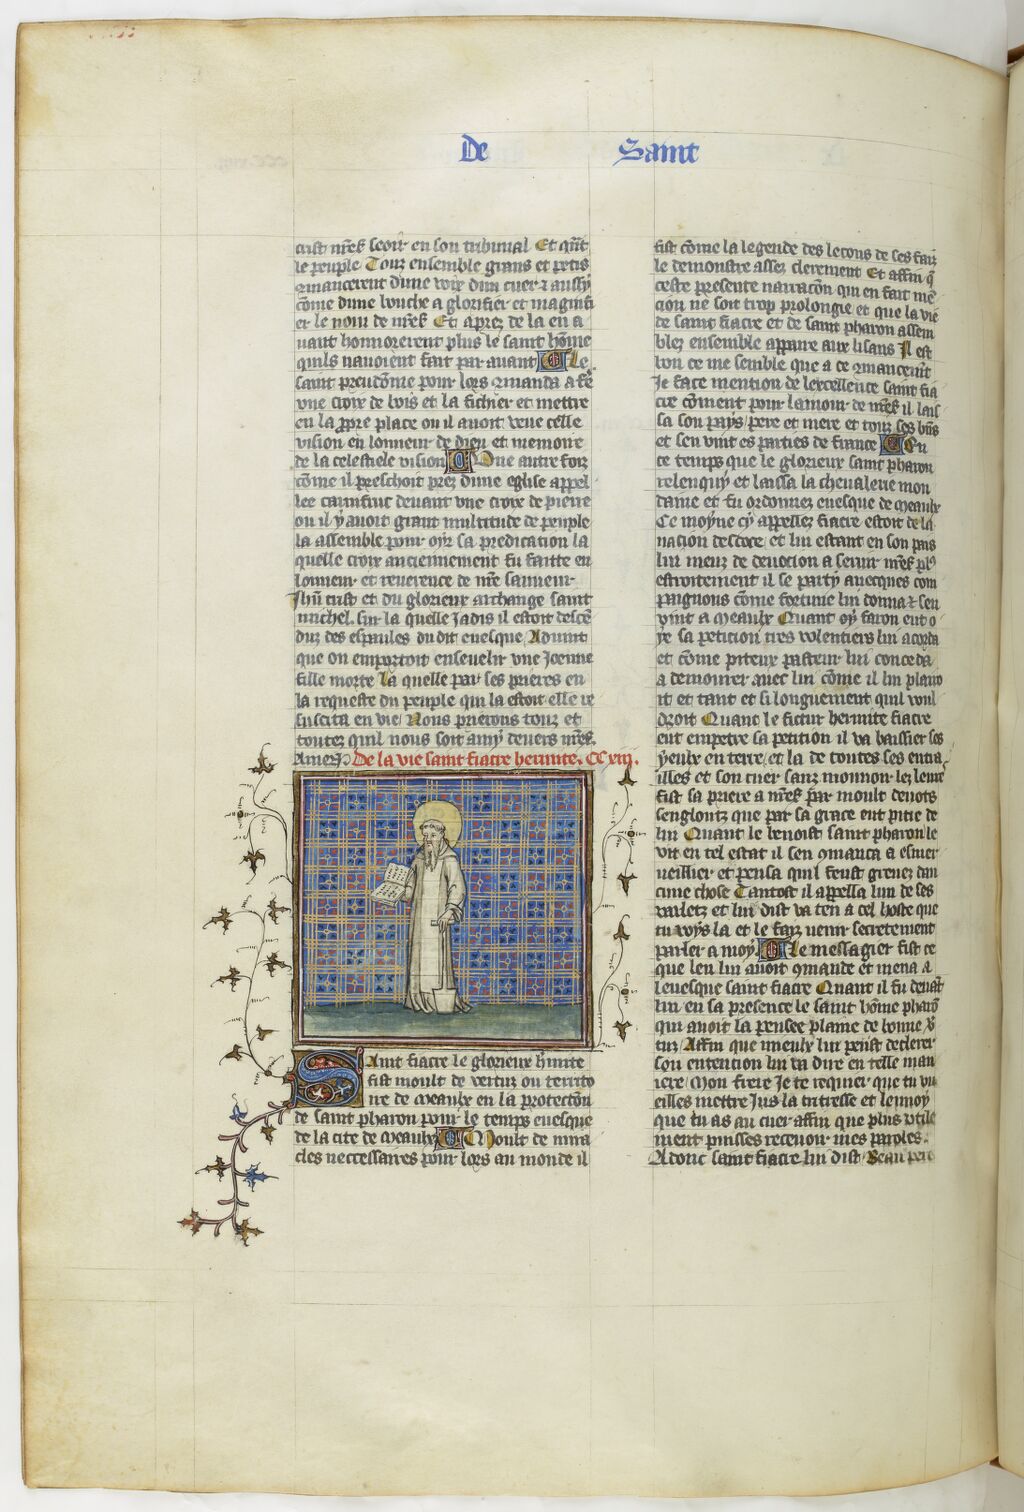 De Saint
crist nr̃e s seoir en son tribunal Et qñt
le peuple Touz ensemble grans et petis
9mancerent dune voix dun cuer & aussy
cõme dune bouche a glorifier et magnifi
er le nom de Et aprez de la en a
uant honnorerent plus le saint hõme
quilz nauoient fait par auant Le
saint preudõme pour lors 9manda a fẽ
vne croix de bois et la fichier et mettre
en la ꝓpre place ou il auoit veue celle
vision en lonneur de dieu et memoire
de la celestiele vision Une autre foiz
cõme il preschoit prez dune eglise appel
lee deuant vne croix de pierre
ou il y auoit grant multitude de peuple
la assemble pour oyr sa predication la
quelle croix anciennement fu faitte en
lonneur et reuerence de nr̃e sauueur
Jhũ crist et du glorieux archange saint
michel. sur la quelle Jadis il estoit descẽ
duz des espaules du dit euesque Aduint
que on emportoit enseuelir vne Joenne
fille morte La quelle par ses prieres en
la requeste du peuple qui la estoit elle re
suscita en vie Nous prierons touz et
toutez quil nous soit amy deuers
Amen. De la vie saint fiacre hermite. CC xiij.
Saint fiacre le glorieux hmite
fist moult de vertuz ou territo
ire de meaulx en la protectõn
de saint pharon pour le temps euesque
de la cite de meaulx Moult de mira
cles neccessaires pour lors au monde il
fist cõme la legende des lecons de ses faiz
le demonstre assez clerement Et affin q̃
ceste presente narracõn qui en fait mẽ
cion ne soit trop prolongie et que la vie
de saint fiacre et de saint pharon assem
blez ensemble appaire aux lisans Il est
bon ce me semble que a ce 9mancemt̃
Je face mention de lexcellence saint fia
cre cõment pour lamour de il lais
sa son pays pere et mere et touz ses bñs
et sen vint es parties de france En
ce temps que le glorieux saint pharon
relenquy et laissa la cheualerie mon
daine et fu ordonnez euesque de meaulx
Ce moyne cy appellez fiacre estoit de la
nacion descoce et lui estant en son pais
lui meuz de deuocion a seruir pl9
estroitement il se party auecques com
paignons cõme fortune lui donna & sen
vint a meaulx Quant oy faron eut o
ye sa peticion tres volentiers lui acorda
et cõme piteux pasteur lui conceda
a demourer auec lui cõme il lui plairo
it et tant et si longuement quil voul
droit Quant le futur hermite fiacre
eut empetre sa peticion il va baissier ses
yeulx en terre et la de toutes ses entra
illes et son cuer sanz mounoir lez leures
fist sa priere a par moult deuots
senglouz que par sa grace eut pitie de
lui Quant le benoist saint pharon le
vit en tel estat il sen 9manca a esmer
ueillier et pensa quil feust greuez dau
cune chose Tantost il appella lun de ses
varletz et lui dist va ten a cel hoste que
tu voys la et le faiz venir secretement
parler a moy Le messagier fist ce
que len lui auoit 9mande et mena a
leuesque saint fiacre Quant il fu deuãt
lui en sa presence le saint hõme pharõ
qui auoit la pensee plaine de bonne v̾
tuz Affin que mieulx lui peust declerer
son entencion lui va dire en telle man
iere Mon frere Je te requier que tu vu
eilles mettre Jus la tristesse et lennoy
que tu as au cuer affin que plus vtile
ment puisses receuoir mes paroles.
Adonc saint fiacre lui dist Beau pere